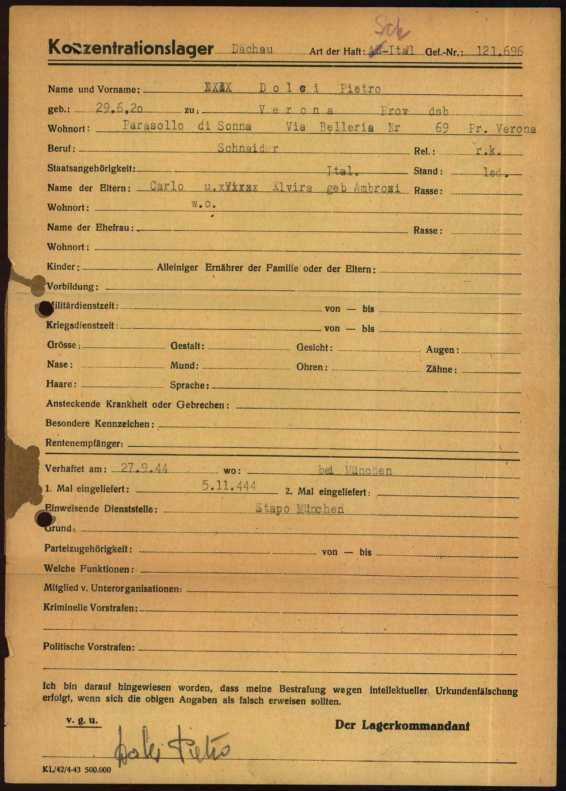 Sch
Konzentrationslager Dachau Art der Haft: Ital Gef.-Nr.: 121.696
Name und Vorname: XXXX Dolci Pietro
geb.: 29.6.20 zu: Verona Prov dsb
Wohnort: Parasollo di Sonna Via Belleria Nr 69 Pr. Verona
Beruf: Schneider Rel.: r.k.
Staatsangehörigkeit: Jtal. Stand: led.
Name der Eltern: Carlo u. Elvira geb Ambrosi Rasse:
Wohnort: w.o.
Name der Ehefrau: Rasse:
Wohnort:
Kinder: Alleiniger Ernährer der Familie oder der Eltern:
Vorbildung:
Militärdienstzeit: von — bis
Kriegsdienstzeit: von — bis
Grösse: Gestalt: Gesicht: Augen:
Nase: Mund: Ohren: Zähne:
Haare: Sprache:
Ansteckende Krankheit oder Gebrechen:
Besondere Kennzeichen:
Rentenempfänger:
Verhaftet am: 27.9.44 wo: bei München
1. Mal eingeliefert: 5.11.444 2. Mal eingeliefert:
Einweisende Dienststelle: Stapo München
Grund:
Parteizugehörigkeit: von — bis
Welche Funktionen:
Mitglied v. Unterorganisationen:
Kriminelle Vorstrafen:
Politische Vorstrafen:
Ich bin darauf hingewiesen worden, dass meine Bestrafung wegen intellektueller Urkundenfälschung
erfolgt, wenn sich die obigen Angaben als falsch erweisen sollten.
v. g. u. Der Lagerkommandant
Dolci Pietro
KL/42/4-43 500.000